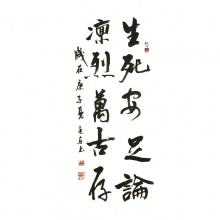 生死安足論
凛烈萬古存
歲在庚子夏